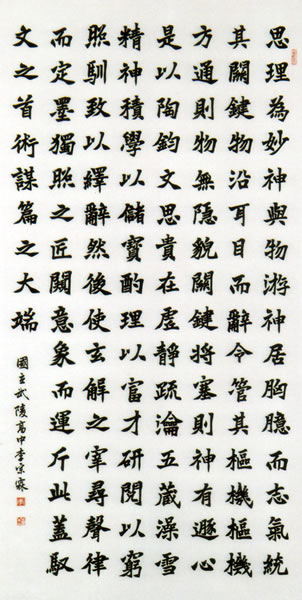 思理為妙神與物游神居胸臆而志氣統
其關鍵物沿耳目而辭令管其樞機樞機
方通則物無隱貌關鍵將塞則神有遯心
是以陶鈞文思貴在虛靜疏瀹五藏澡雪
精神積學以儲寶酌理以富才研閱以窮
照馴致以繹辭然後使玄解之宰尋聲律
而定墨獨照之匠闚意象而運斤此蓋馭
文之首術謀篇之大端
國立武陵高中李宗霖